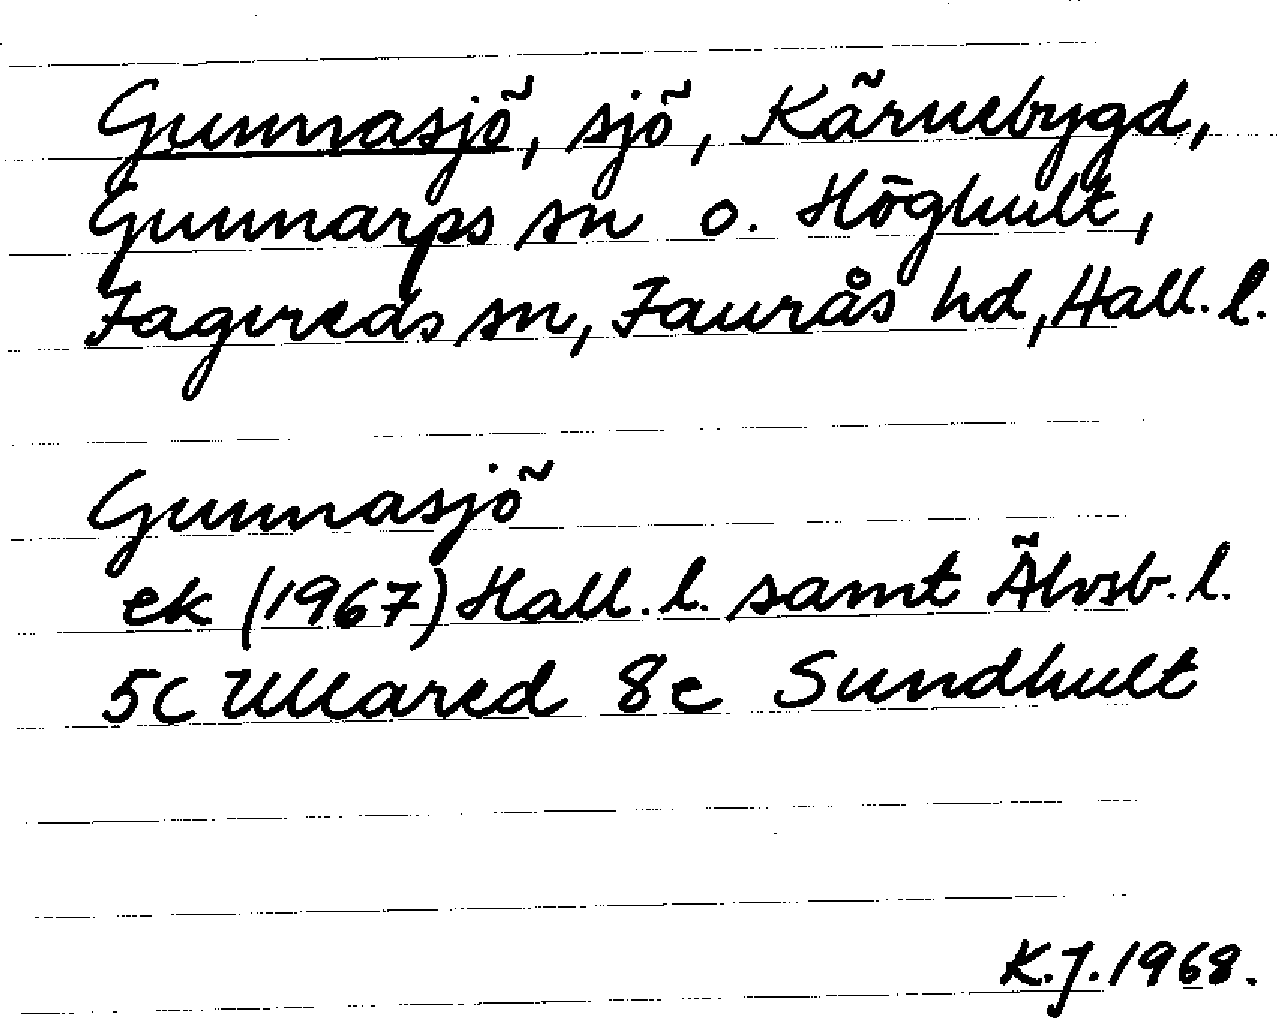 Gunnasjö, sjö, Kärnebygd,
Gunnarps sn o. Höghult,
Fagereds sn, Faurås hd, Hall. l.
Gunnasjö
ek (1967) Hall. l. samt Älvsb. l.
5c Ullared 8e Sundhult
K.J. 1968.